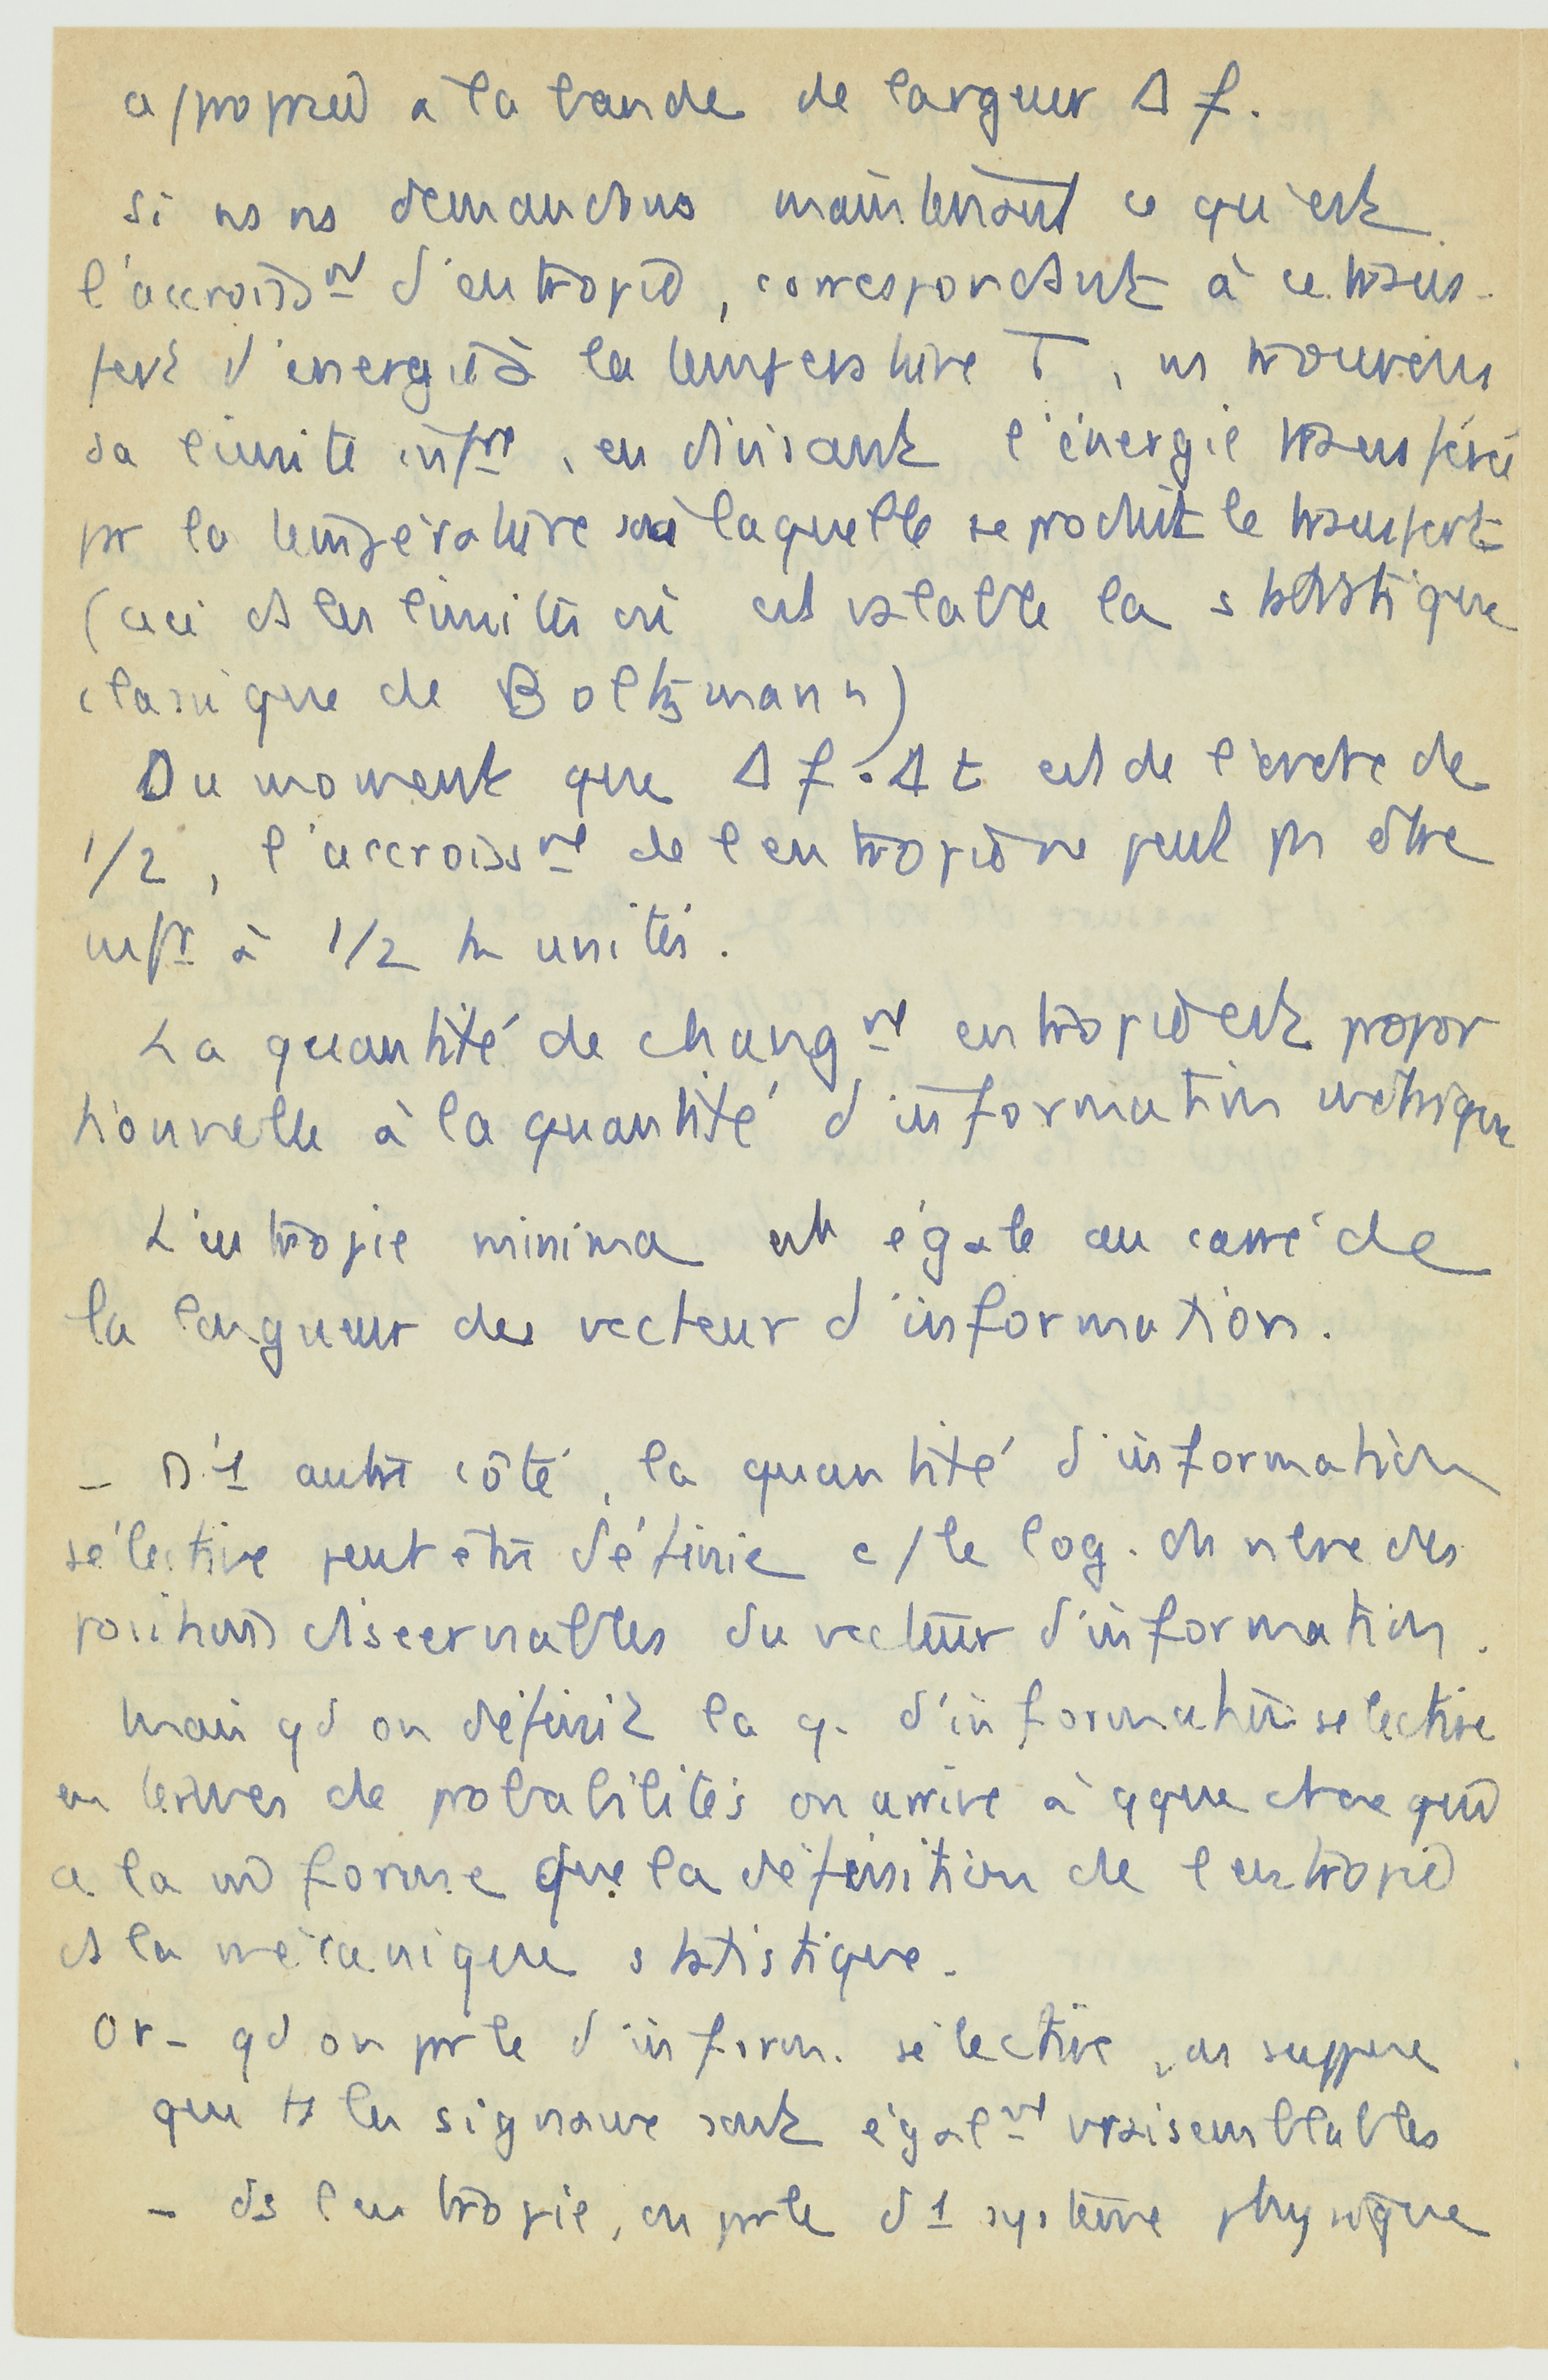 appropriée à la bande de largeur Δ f.
Si ns ns demandons maintenant ce qu'est
l'accroissmt d'entropie, correspondant à ce trans-
fert d'énergie à la température T, ns trouvons
sa limite infre, en divisant l'énergie transférée
pr la température à laquelle se produit le transfert
(ceci ds les limites où est valable la statistique
classique de Boltzmann)
Du moment que Δ f . Δ t est de l'ordre de
1/2, l'accroissmt de l'entropie ne peut ps être
infr à 1/2 k unités.
La quantité de changmt entropie est propor
tionnelle à la quantité d'information métrique
L'entropie minima est égale au carré de
la longueur du vecteur d'information.
- D'1 autre côté, la quantité d'information
sélective peut être définie c/ le log. du nbre des
positions discernables du vecteur d'information.
Mais qd on définit la q. d'information sélective
en termes de probabilités on arrive à qque chose qui
a la m forme que la définition de l'entropie
ds la mécanique statistique.
Or - qd on prle d'inform. sélective, on suppose
que ts les signaux sont égalmt vraisemblables
- ds l'entropie, on prle d'1 système physique